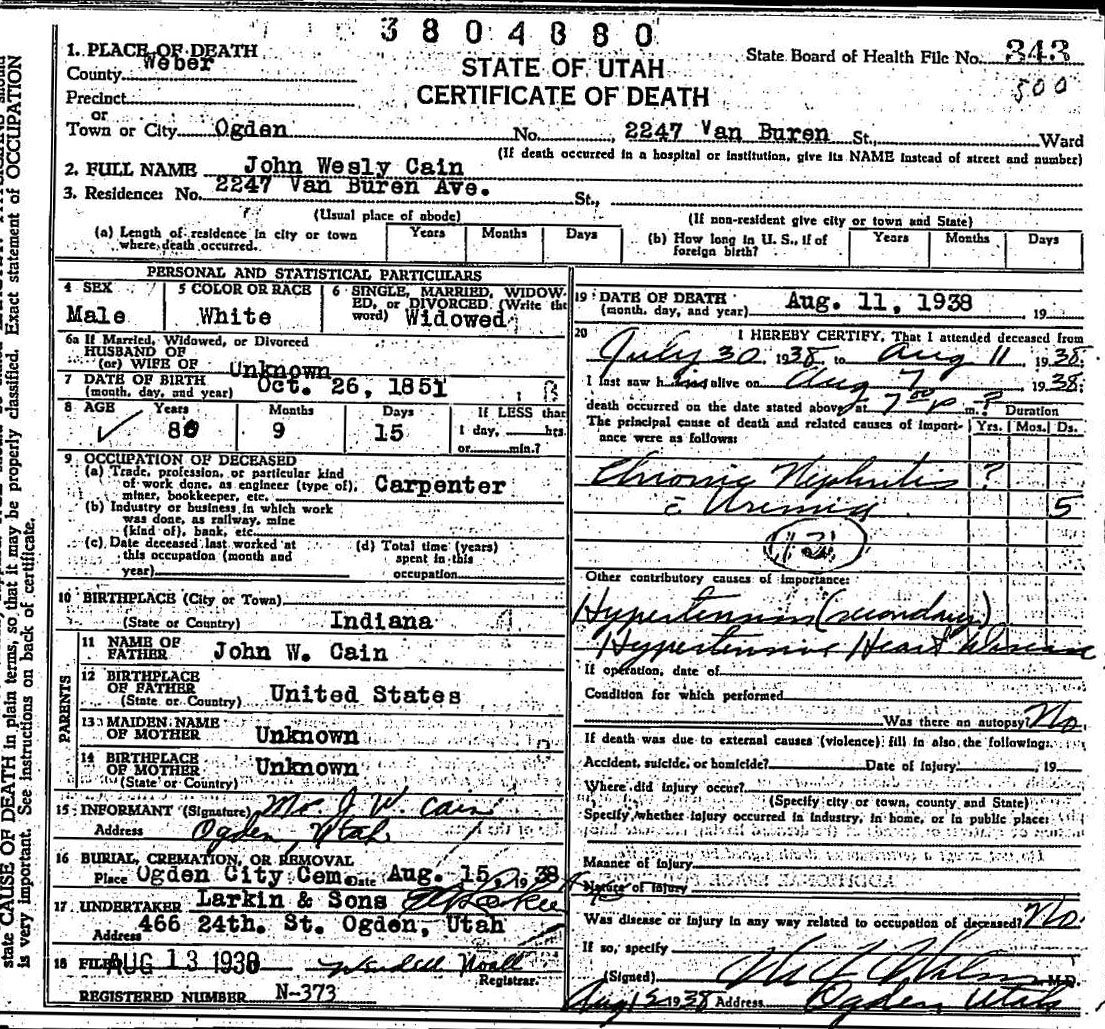 3804880
1. PLACE OF DEATH
State Board of Health File No. 343
County Weber
STATE OF UTAH
500
Precinct
CERTIFICATE OF DEATH
or
Town or City Ogden No. , 2247 Van Buren St., Ward
(If death occurred in a hospital or institution, give its NAME instead of street and number)
2. FULL NAME John Wesly Cain
3. Residence: No. 2247 Van Buren Ave. St.,
(Usual place of abode) (If non-resident give city or town and State)
(a) Length of residence in city or town where death occurred. Years Months Days
(b) How long in U. S., if of foreign birth? Years Months Days
PERSONAL AND STATISTICAL PARTICULARS
4 SEX Male
5 COLOR OR RACE White
6 SINGLE, MARRIED, WIDOWED, or DIVORCED (Write the word) Widowed
6a If Married, Widowed, or Divorced
HUSBAND OF
(or) WIFE OF Unknown
7 DATE OF BIRTH (month, day, and year) Oct. 26, 1851
8 AGE Years Months Days If LESS than
86 9 15 1 day, hrs.
or min.?
9 OCCUPATION OF DECEASED
(a) Trade, profession, or particular kind of work done, as engineer (type of), miner, bookkeeper, etc. Carpenter
(b) Industry or business in which work was done, as railway, mine (kind of), bank, etc.
(c) Date deceased last worked at this occupation (month and year)
(d) Total time (years) spent in this occupation
10 BIRTHPLACE (City or Town)
(State or Country) Indiana
PARENTS
11 NAME OF FATHER John W. Cain
12 BIRTHPLACE OF FATHER (State or Country) United States
13 MAIDEN NAME OF MOTHER Unknown
14 BIRTHPLACE OF MOTHER (State or Country) Unknown
15 INFORMANT (Signature) J. W. Cain
Address Ogden, Utah
16 BURIAL, CREMATION, OR REMOVAL
Place Ogden City Cem. Date Aug. 15, 1938
17 UNDERTAKER Larkin & Sons
Address 466 24th. St. Ogden, Utah
18 FILED AUG 13 1938 Wendell Noall
Registrar.
REGISTERED NUMBER N-373
19 DATE OF DEATH (month, day, and year) Aug. 11, 1938 19
20 I HEREBY CERTIFY, That I attended deceased from
July 30 1938 to Aug 11 1938:
I last saw him alive on Aug 7 1938:
death occurred on the date stated above, at 7 00 p m.? Duration
The principal cause of death and related causes of importance were as follows: Yrs. Mos. Ds.
Chronic Nephritis ?
c̄ Uremia 5
Other contributory causes of importance:
Hypertension (secondary)
Hypertensive Heart Disease
If operation, date of
Condition for which performed
Was there an autopsy? No
If death was due to external causes (violence) fill in also the following:
Accident, suicide, or homicide? Date of Injury 19
Where did injury occur?
(Specify city or town, county and State)
Specify whether injury occurred in industry, in home, or in public place:
Manner of injury
Nature of injury
Was disease or injury in any way related to occupation of deceased? No
If so, specify
(Signed) M.D.
Aug 15 1938 Address Ogden, Utah
state CAUSE OF DEATH in plain terms, so that it may be properly classified. Exact statement of OCCUPATION
is very important. See instructions on back of certificate.